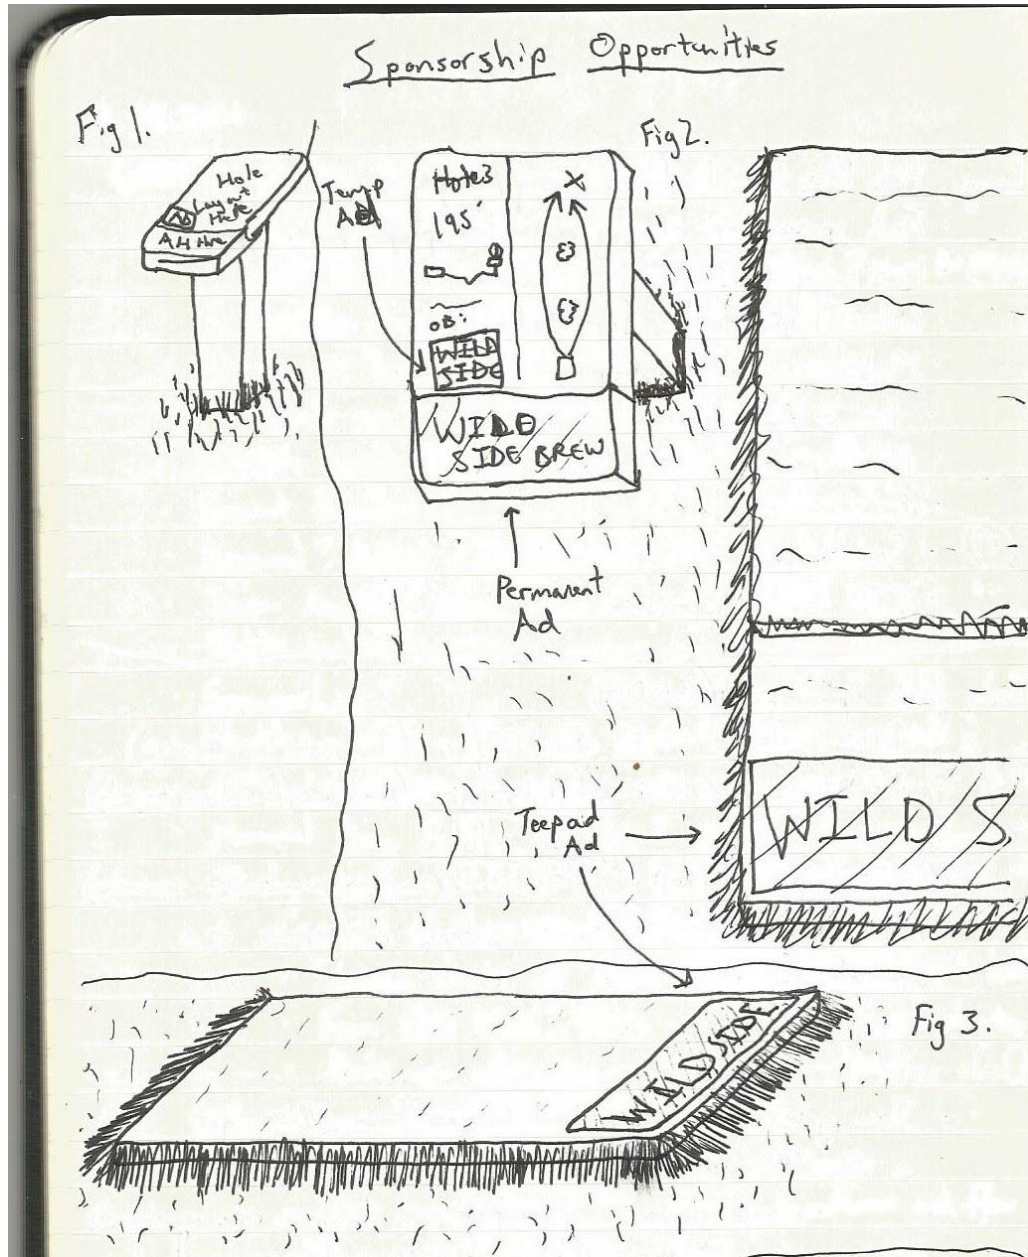 Sponsorship Opportunities
Fig 1.
Fig 2.
Hole
Layout
Here
Ad
Ad Here
Temp
Ad
Hole 3
195'
OB:
WILD
SIDE
WILD
SIDE BREW
Permanent
Ad
Teepad
Ad
WILD S
WILD SIDE
Fig 3.